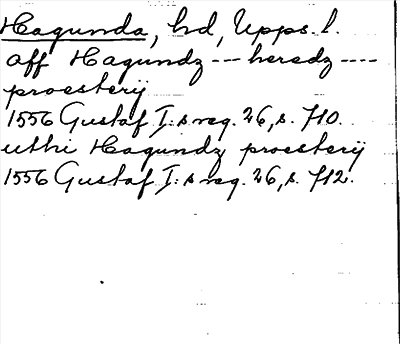 Hagunda, hd, Upps. l.
aff Hagundz --- heredz ----
proesterij
1556 Gustaf I:s reg. 26, s. 710.
uthi Hagundz proesterij
1556 Gustaf I:s reg. 26, s. 712.